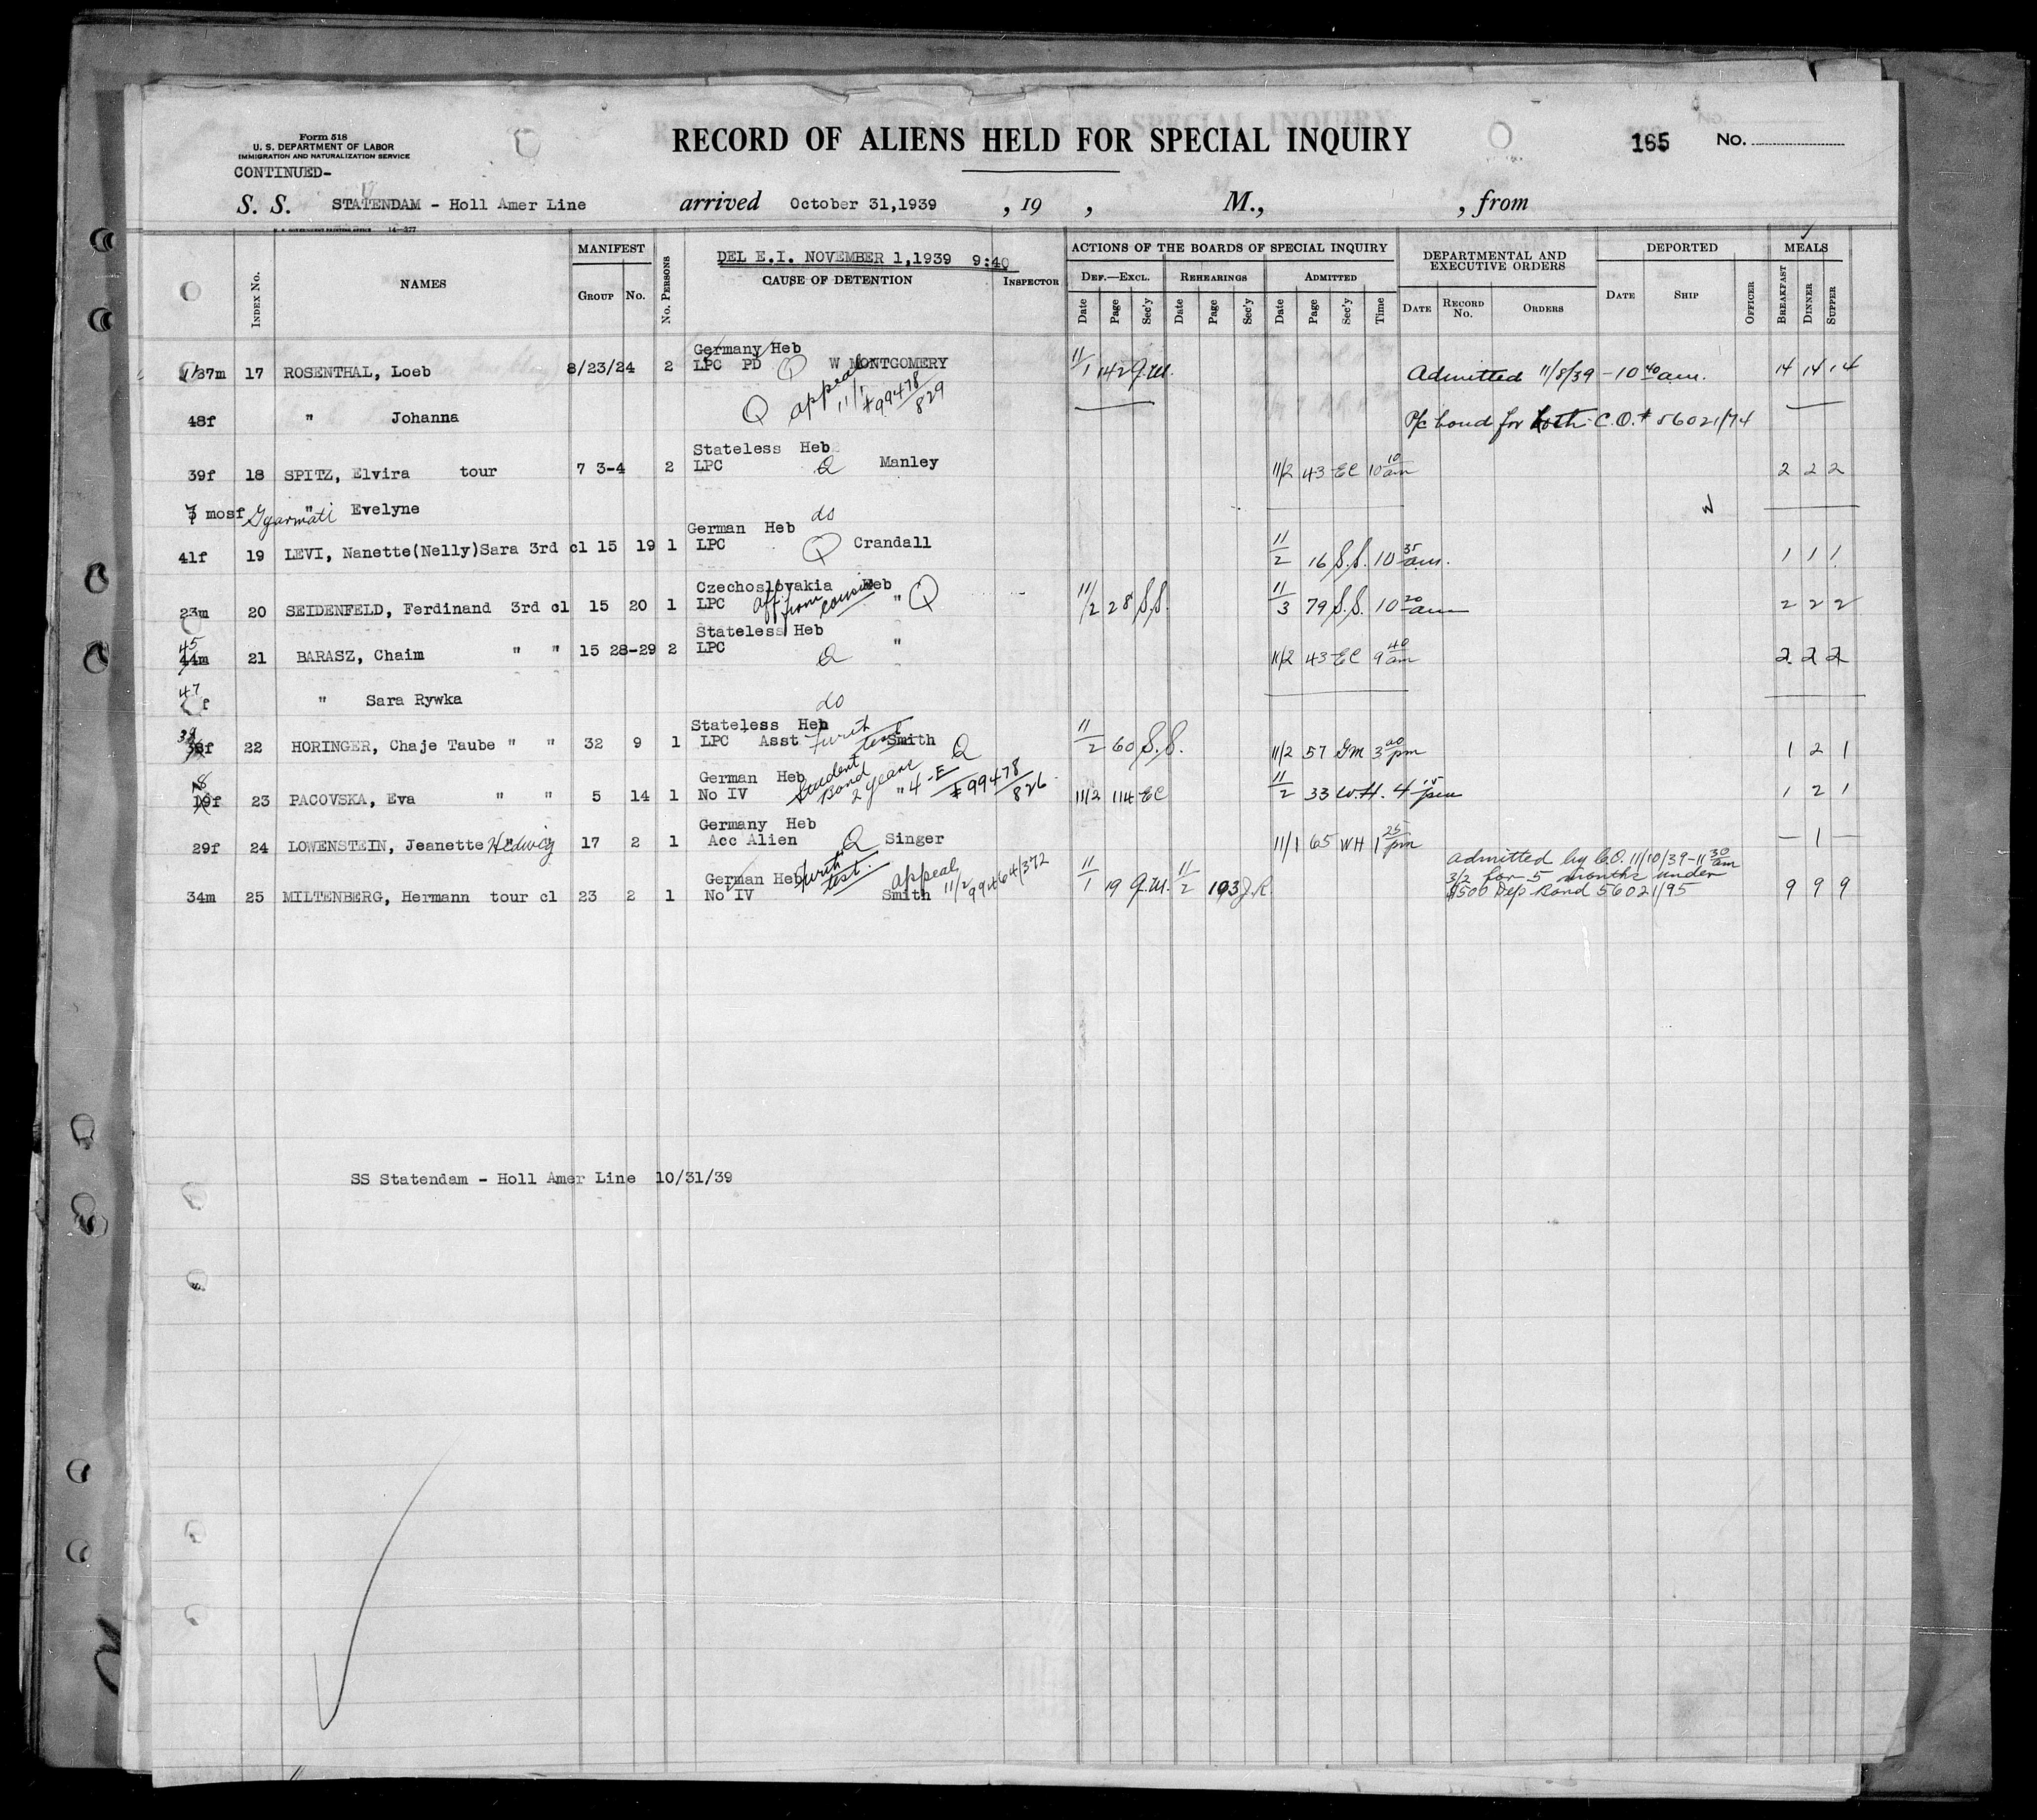 Form 518
U. S. DEPARTMENT OF LABOR
IMMIGRATION AND NATURALIZATION SERVICE
CONTINUED-
RECORD OF ALIENS HELD FOR SPECIAL INQUIRY
165 No.
S. S. STATENDAM - Holl Amer Line arrived October 31,1939 , 19 , M., , from
U. S. GOVERNMENT PRINTING OFFICE 14-377
Index No. NAMES MANIFEST Group No. No. Persons DEL E.I. NOVEMBER 1,1939 9:40 CAUSE OF DETENTION Inspector
ACTIONS OF THE BOARDS OF SPECIAL INQUIRY Def.—Excl. Rehearings Admitted
Date Page Sec'y Date Page Sec'y Date Page Sec'y Time
DEPARTMENTAL AND EXECUTIVE ORDERS Date Record No. Orders
DEPORTED Date Ship Officer
MEALS Breakfast Dinner Supper
Germany Heb
37m 17 ROSENTHAL, Loeb 8/23/24 2 LPC PD Q W MONTGOMERY 11/1 142 J.M. Admitted 11/8/39 - 10 40 am. 14 14 14
Q appeal 11/1 #99478/829
48f " Johanna P/c bond for both C.O. # 56021/74
Stateless Heb
39f 18 SPITZ, Elvira tour 7 3-4 2 LPC Q Manley 11/2 43 EC 10 10 am 2 2 2
7 mosf Gyarmati " Evelyne do
German Heb
41f 19 LEVI, Nanette(Nelly)Sara 3rd cl 15 19 1 LPC Q Crandall 11/2 16 S.S. 10 35 am. 1 1 1
Czechoslovakia Heb
23m 20 SEIDENFELD, Ferdinand 3rd cl 15 20 1 LPC aff from cousin " Q 11/2 28 S.S. 11/3 79 S.S. 10 20 am 2 2 2
Stateless Heb
45 44m 21 BARASZ, Chaim " " 15 28-29 2 LPC Q " 11/2 43 EC 9 40 am 2 2 2
47 f " Sara Rywka do
Stateless Heb
38f 22 HORINGER, Chaje Taube " " 32 9 1 LPC Asst Furth test Smith Q 11/2 60 S.S. 11/2 57 GM 3 00 pm 1 2 1
German Heb
18 19f 23 PACOVSKA, Eva " " 5 14 1 No IV Student Bond 2 years "4-E #99478/826 11/2 114 EC 11/2 33 W.H. 4 15 pm 1 2 1
Germany Heb
29f 24 LOWENSTEIN, Jeanette Hedwig " 17 2 1 Acc Alien Q Singer 11/1 65 WH 1 25 pm — 1 —
German Heb Furth test. appeal 11/2 99464/372
34m 25 MILTENBERG, Hermann tour cl 23 2 1 No IV Smith 11/1 19 J.M. 11/2 103 J.R. 9 9 9
Admitted by C.O. 11/10/39 - 11 30 am
3/2 for 5 months under
$500 Dep Bond 56021/95
SS Statendam - Holl Amer Line 10/31/39